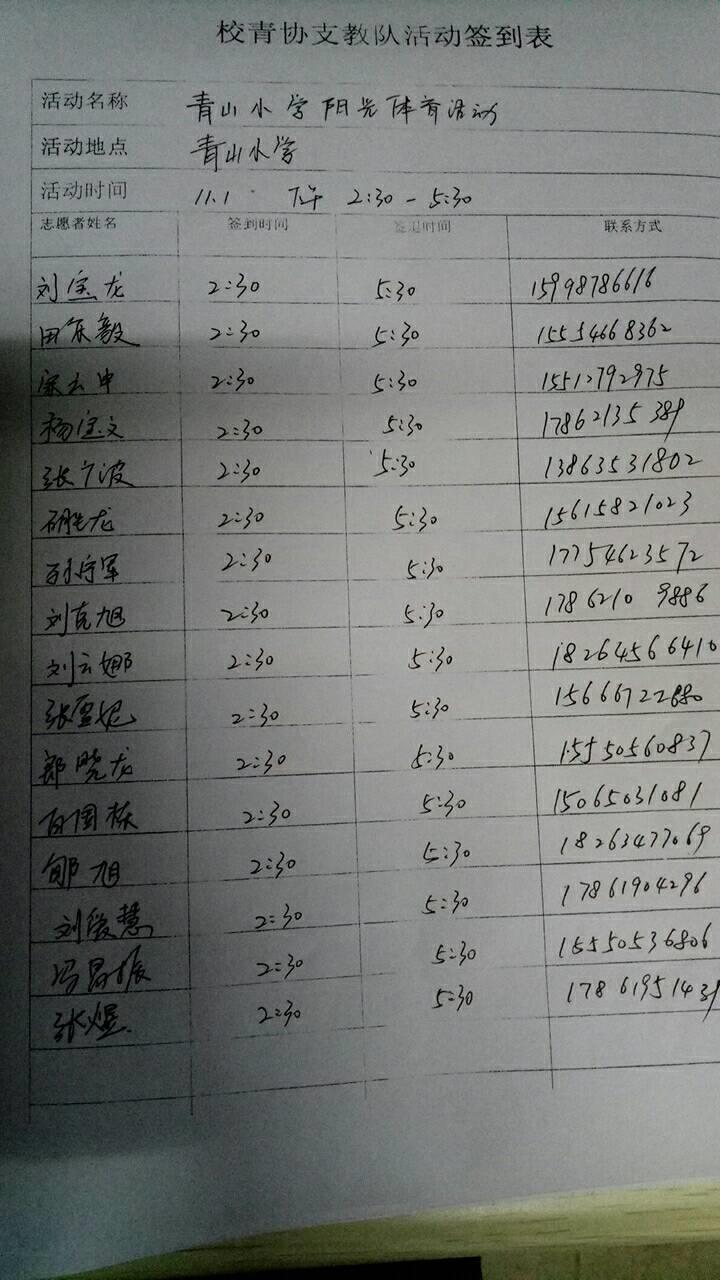 校青协支教队活动签到表
活动名称 青山小学阳光体育活动
活动地点 青山小学
活动时间 11.1 下午 2:30-5:30
志愿者姓名 签到时间 签退时间 联系方式
刘宝龙 2:30 5:30 15998786616
田东毅 2:30 5:30 15554668362
宋云中 2:30 5:30 15512792975
杨宝文 2:30 5:30 17862135389
张广波 2:30 5:30 13863531802
胡胜龙 2:30 5:30 15615821023
孙守军 2:30 5:30 17754623572
刘克旭 2:30 5:30 1786210 9886
刘云娜 2:30 5:30 18264566410
张雪妮 2:30 5:30 15666722680
郭晓龙 2:30 5:30 15550560837
白国栋 2:30 5:30 15065031081
郇旭 2:30 5:30 18263477069
刘爱慧 2:30 5:30 17861904296
冯昌振 2:30 5:30 15550536806
张煜 2:30 5:30 17861951439